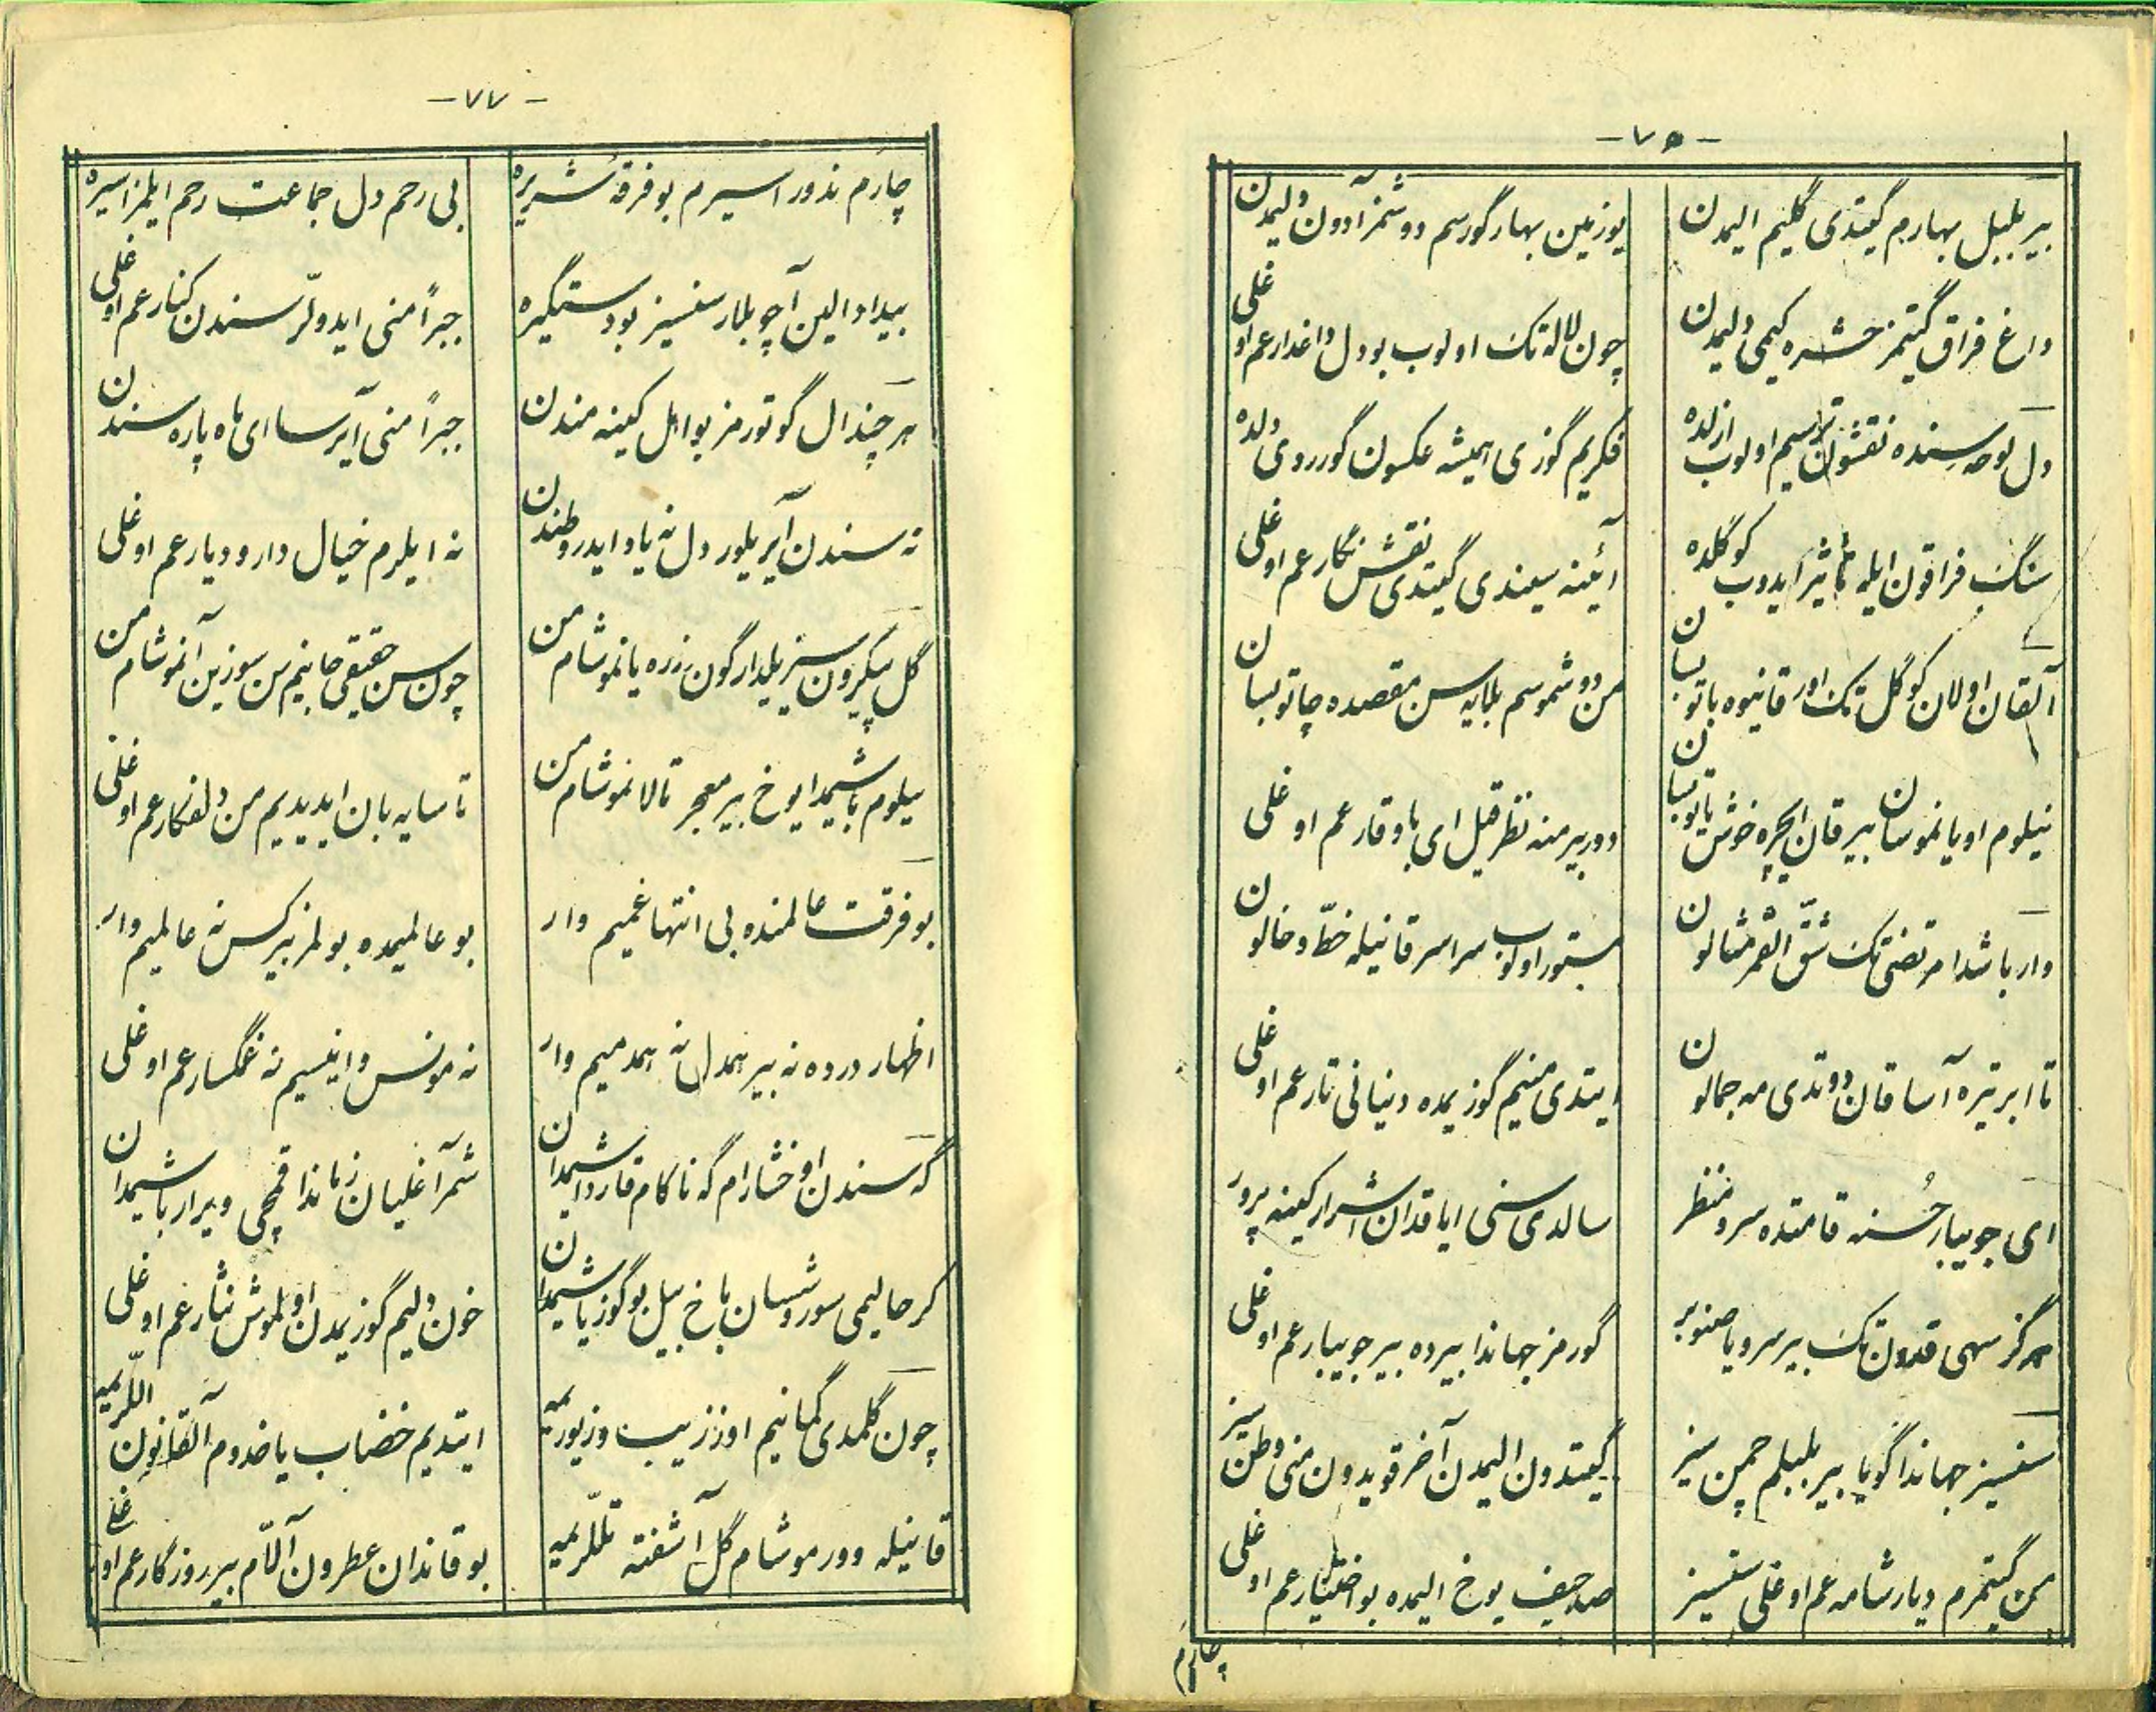 - ٧٥ -
بیر بلبل بهارم گیتدی گلیم الیمدن
یوزمین بهار گورسم دوشمز آدون دلیمدن
داغ فراق گیتمز حشره کیمی دلیمدن
چون لاله تک اولوب بو دل داغدار عم اوغلی
دل لوحه سنده نقشون ترسیم اولوب ازلده
فکریم گوزی همیشه عکسون گورردی دلده
سنگ فراقون ایله تأثیر ایدوب کوگلده
آئینه سیندی گیتدی نقش نگار عم اوغلی
آلقان اولان کوگل تک اور قانیوه باتوبسان
من دوشموسم بلایه سن مقصده چاتوبسان
نیلوم اویانموسان بیر قان ایچره خوش یاتوبسان
دور بیر منه نظر قیل ای باوقار عم اوغلی
وار باشدا مرتضی تک شقّ القمر مثالون
مستور اولوب سراسر قانیله خطّ و خالون
تا ابر تیره آسا قان دوتدی مه جمالون
ایتدی منیم گوزیمده دنیانی تار عم اوغلی
ای جویبار حُسنه قامتده سرو منظر
سالدی سنی ایاقدان اشرار کینه پرور
هرگز سهی قدون تک بیر سرو یا صنوبر
گورمز جهاندا بیرده بیر جویبار عم اوغلی
سنسیز جهاندا گویا بیر بلبلم چمن سیز
گیتدون الیمدن آخر قویدون منی وطن سیز
من گیتمرم دیار شامه عم اوغلی سنسیز
صد حیف یوخ الیمده بو اختیار عم اوغلی
چارم
- ٧٧ -
چارم ندور اسیرم بو فرقهٔ شریره
بی رحم دل جماعت رحم ایلمز اسیره
بیداد الین آچوبلار سنسیز بو دستگیره
جبراً منی ایدولّر سندن کنار عم اوغلی
هر چند ال گوتورمز بو اهل کینه مندن
جبراً منی آیرسا ای ماه پاره سندن
نه سندن آیریلور دل نه یاد ایدر وطندن
نه ایلرم خیال دار و دیار عم اوغلی
گل پیکرون سریلدار گون رزده یانموشام من
چون سن حقیقی جانیم سن سوزین آنموشام من
نیلوم باشیمدا یوخ بیر معجر تالانموشام من
تا سایه بان ایدیدیم من دلفکار عم اوغلی
بو فرقت عالمنده بی انتها غمیم وار
بو عالمیمده بولمز بیر کس نه عالمیم وار
اظهار درده نه بیر همدل نه همدمیم وار
نه مونس و انیسیم نه غمگسار عم اوغلی
گه سندن اوخشارام گه ناکام قارداشیمدان
شمر آغلیان زماندا قمچی ویرار باشیمدان
گر حالیمی سوروشسان باخ بیل بو گوز یاشیمدان
خون دلیم گوزیمدن اولموش نثار عم اوغلی
چون گلمدی گمانیم اوز زیب و زیوریمه
ایتدیم خضاب یاخدوم آلقانون اللریمه
قانیله وورموشام گل آشفته تللریمه
بو قاندان عطرون آللّام بیر روزگار عم اوغلی